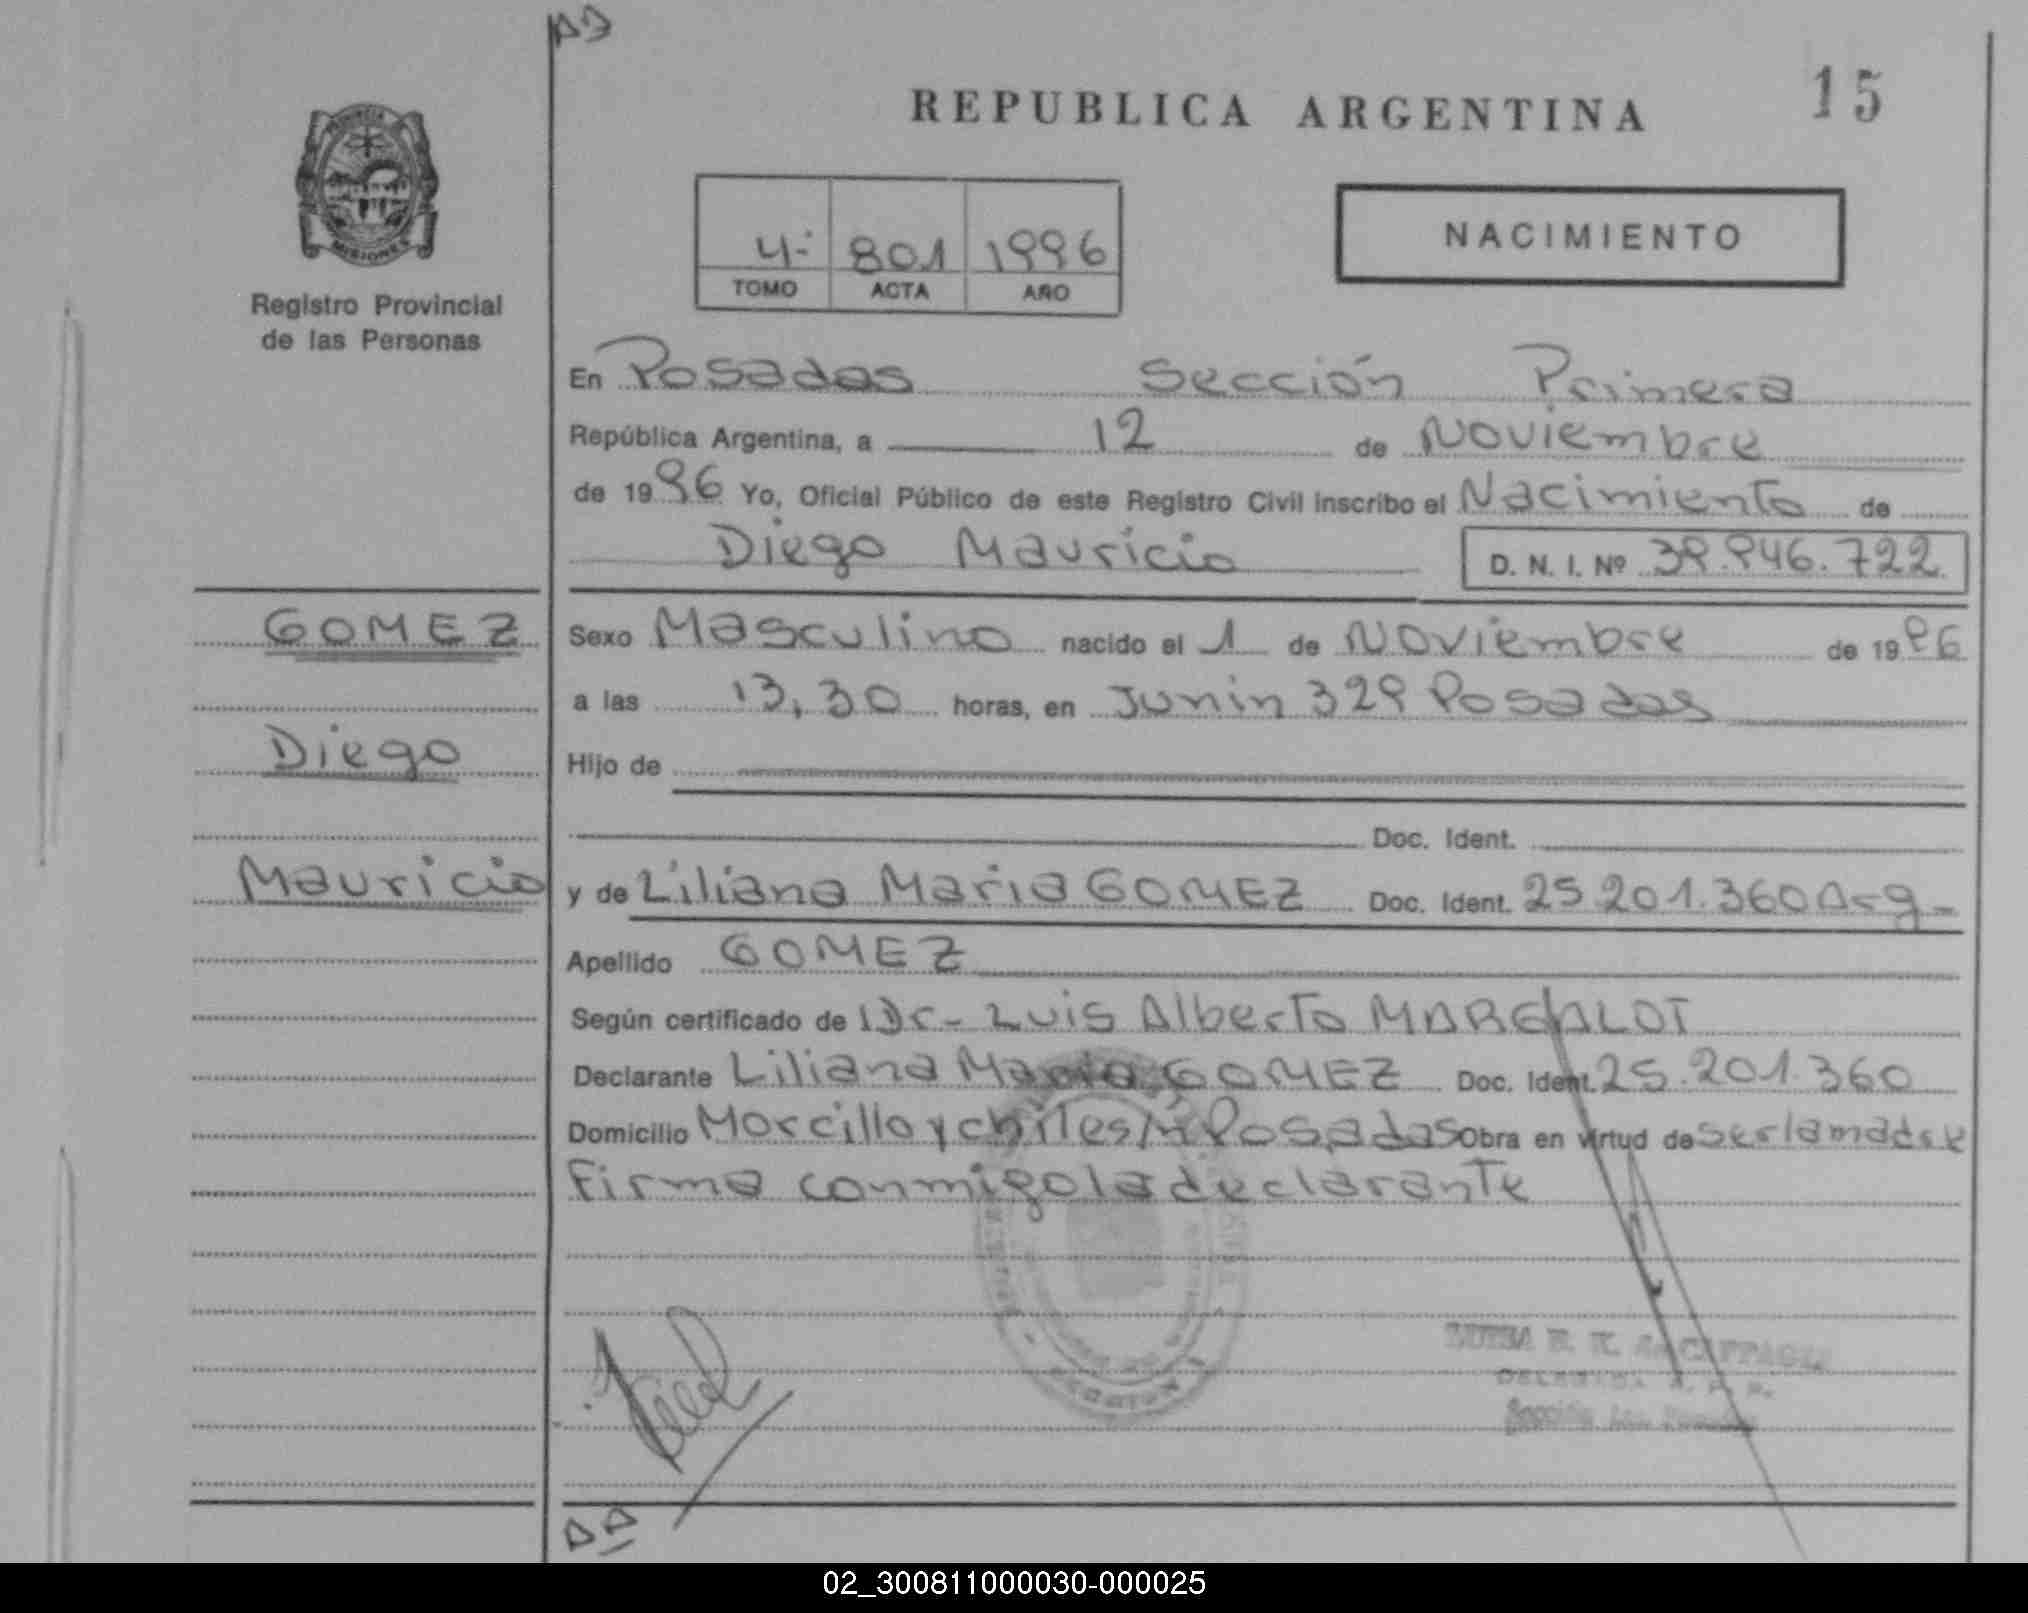 15
REPUBLICA ARGENTINA
PROVINCIA
MISIONES
Registro Provincial
de las Personas
4- 801 1996
TOMO ACTA AÑO
NACIMIENTO
En Posadas Sección Primera
República Argentina, a 12 de Noviembre
de 1996 Yo, Oficial Público de este Registro Civil inscribo el Nacimiento de
Diego Mauricio D. N. I. Nº 39.946.722
GOMEZ
Diego
Mauricio
Sexo Masculino nacido el 1 de Noviembre de 1996
a las 13,30 horas, en Junin 329 Posadas
Hijo de
Doc. Ident.
y de Liliana Maria GOMEZ Doc. Ident. 25.201.360 Arg-
Apellido GOMEZ
Según certificado de Dr- Luis Alberto
Declarante Liliana Maria GOMEZ Doc. Ident. 25.201.360
Domicilio Morcillo y chile s/n Posadas Obra en virtud de ser la madre
Firma conmigo la declarante
02_300811000030-000025